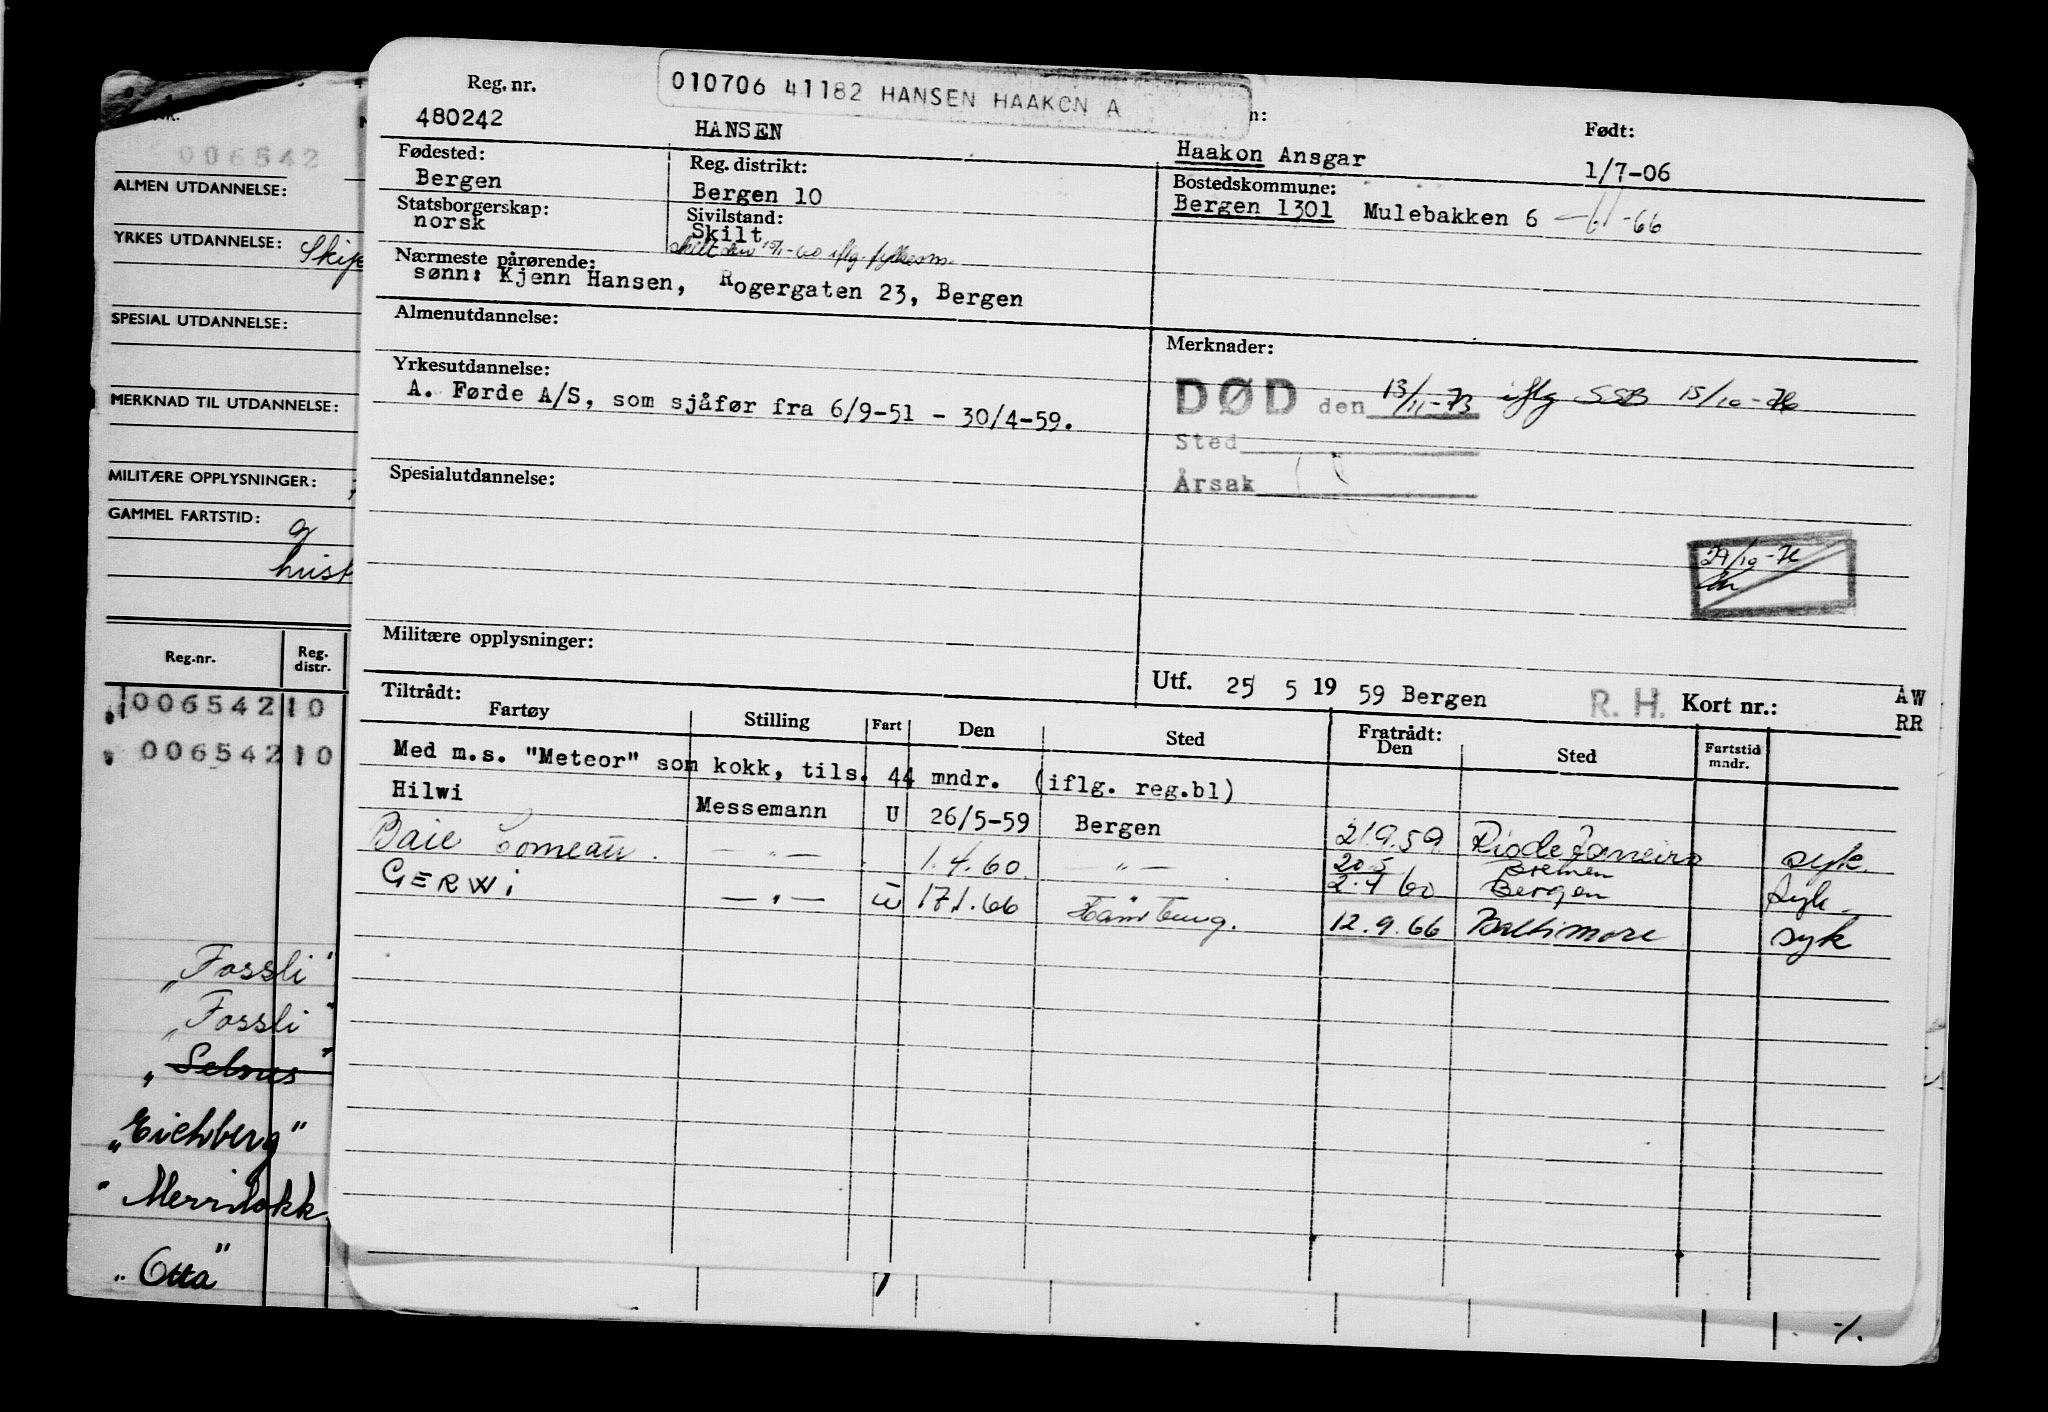 010706 41182 HANSEN HAAKON A
Reg. nr.
n:
Født:
480242
HANSEN
Haakon Ansgar
1/7-06
Fødested:
Reg. distrikt:
Bostedskommune:
Bergen
Bergen 10
Bergen 1301 Mulebakken 6 -66
Statsborgerskap:
Sivilstand:
norsk
Skilt
Nærmeste pårørende:
sønn: Kjenn Hansen, Rogergaten 23, Bergen
Almenutdannelse:
Merknader:
Yrkesutdannelse:
A. Førde A/S, som sjåfør fra 6/9-51 - 30/4-59.
DØD den 13/11-73 iflg SSB 15/10-76
Sted
Årsak
Spesialutdannelse:
29/10-76
Militære opplysninger:
Utf. 25 5 19 59 Bergen R. H. Kort nr.: AW
RR
Tiltrådt:
Fartøy Stilling Fart Den Sted Fratrådt: Den Sted Fartstid mndr.
Med m.s. "Meteor" som kokk, tils. 44 mndr. (iflg. reg.bl)
Hilwi Messemann U 26/5-59 Bergen 21.9.59 Rio de Janeiro syk.
Baie Comeau — " — 1.4.60 — " — 20.5 Bremen
2.7 60 Bergen syk.
GERWI — " — U 17.1.66 Hamburg. 12.9.66 Baltimore syk
006542
ALMEN UTDANNELSE:
YRKES UTDANNELSE:
SPESIAL UTDANNELSE:
MERKNAD TIL UTDANNELSE:
MILITÆRE OPPLYSNINGER:
GAMMEL FARTSTID:
Reg.nr. Reg. distr.
006542 10
006542 10
"Fossli"
"Fossli"
"Selnes"
"Eichberg"
"Otta"